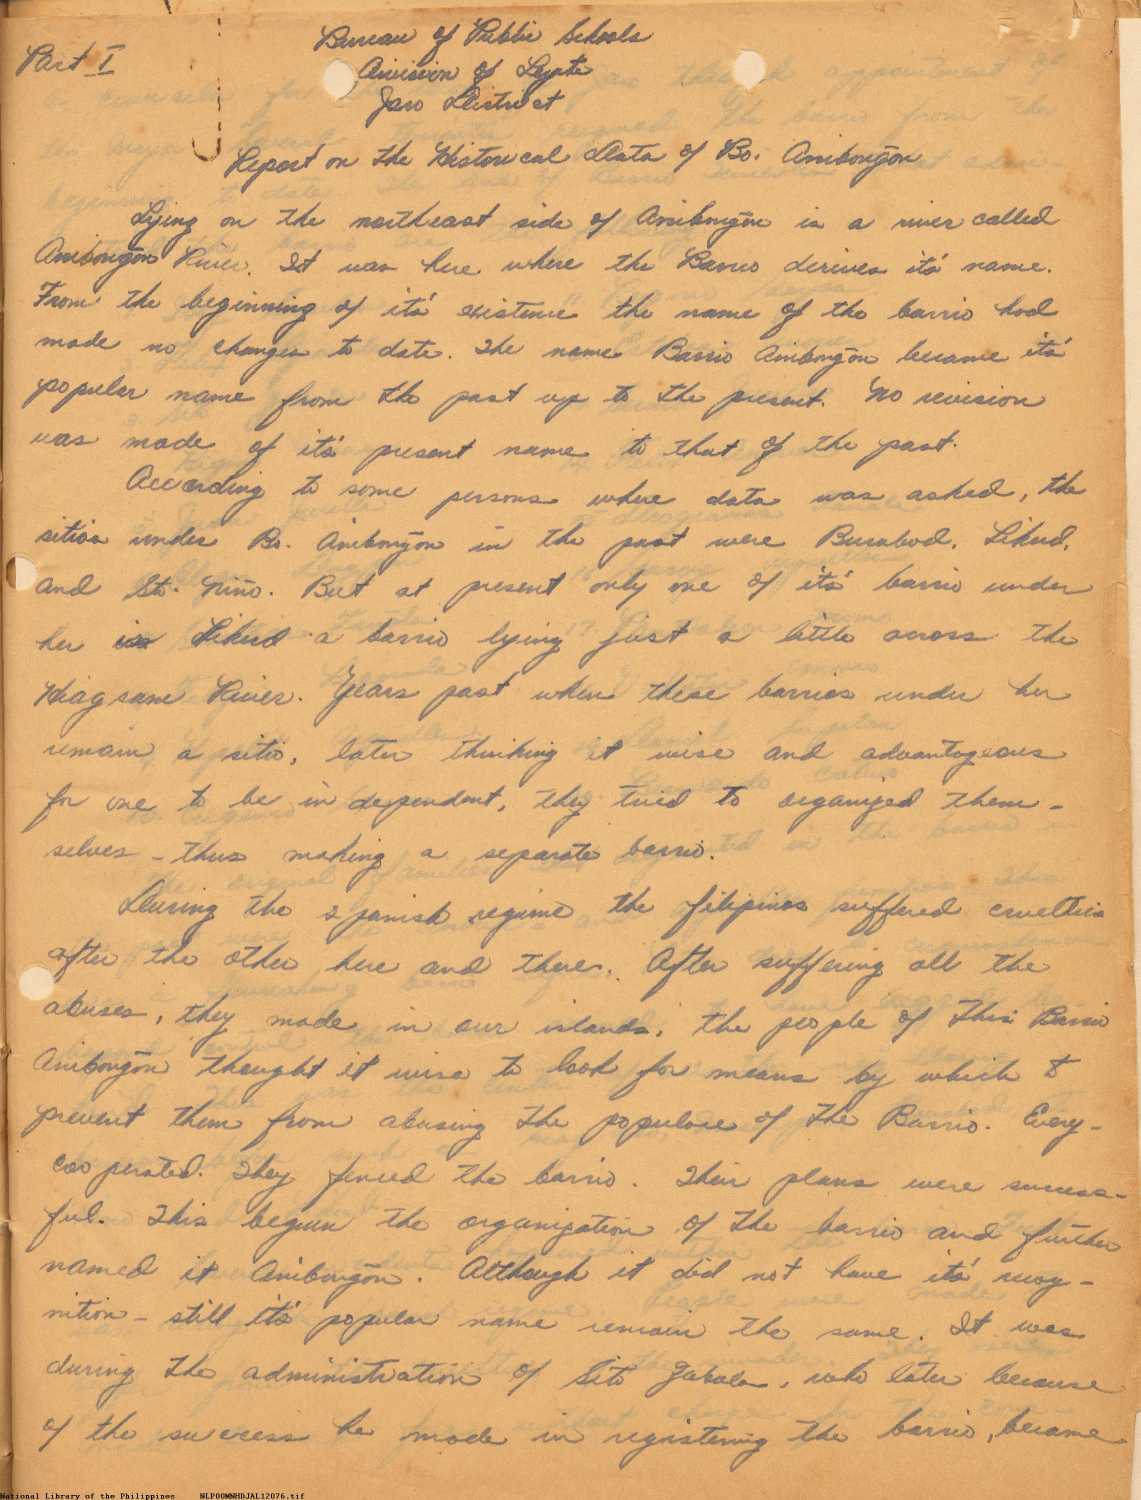 Part I
Bureau of Public Schools
Division of Leyte
Jaro District
Report on the Historical Data of Bo. Anibongon
Lying on the northeast side of Anibongōn is a river called
Anibongōn River. It was here where the Barrio derives it's name.
From the beginning of it's existence the name of the barrio had
made no changes to date. The name Barrio Anibongōn became it's
popular name from the past up to the present. No revision
was made of it's present name to that of the past.
According to some persons where data was asked, the
sitios under Bo. Anibongōn in the past were Burabod, Likud,
and Sto. Niño. But at present only one of it's barrio under
her is Likud a barrio lying just a little across the
Hiagsam River. Years past when these barrios under her
remain a sitio, later thinking it wise and advantageous
for one to be in dependent, they tried to organized them-
selves - thus making a separate barrio.
During the spanish regime the filipinos suffered cruelties
after the other here and there. After suffering all the
abuses, they made in our islands, the people of this Barrio
Anibongōn thought it wise to look for means by which to
prevent them from abusing the populace of the Barrio. Every-
cooperated. They fenced the barrio. Their plans were success-
ful. This begun the organization of the barrio and further
named it Anibongōn. Although it did not have it's recog-
nition - still it's popular name remain the same. It was
during the administration of Sito Zabala, who later because
of the success he made in registering the barrio, became
National Library of the Philippines NLPOOMNHDJAL12076.tif